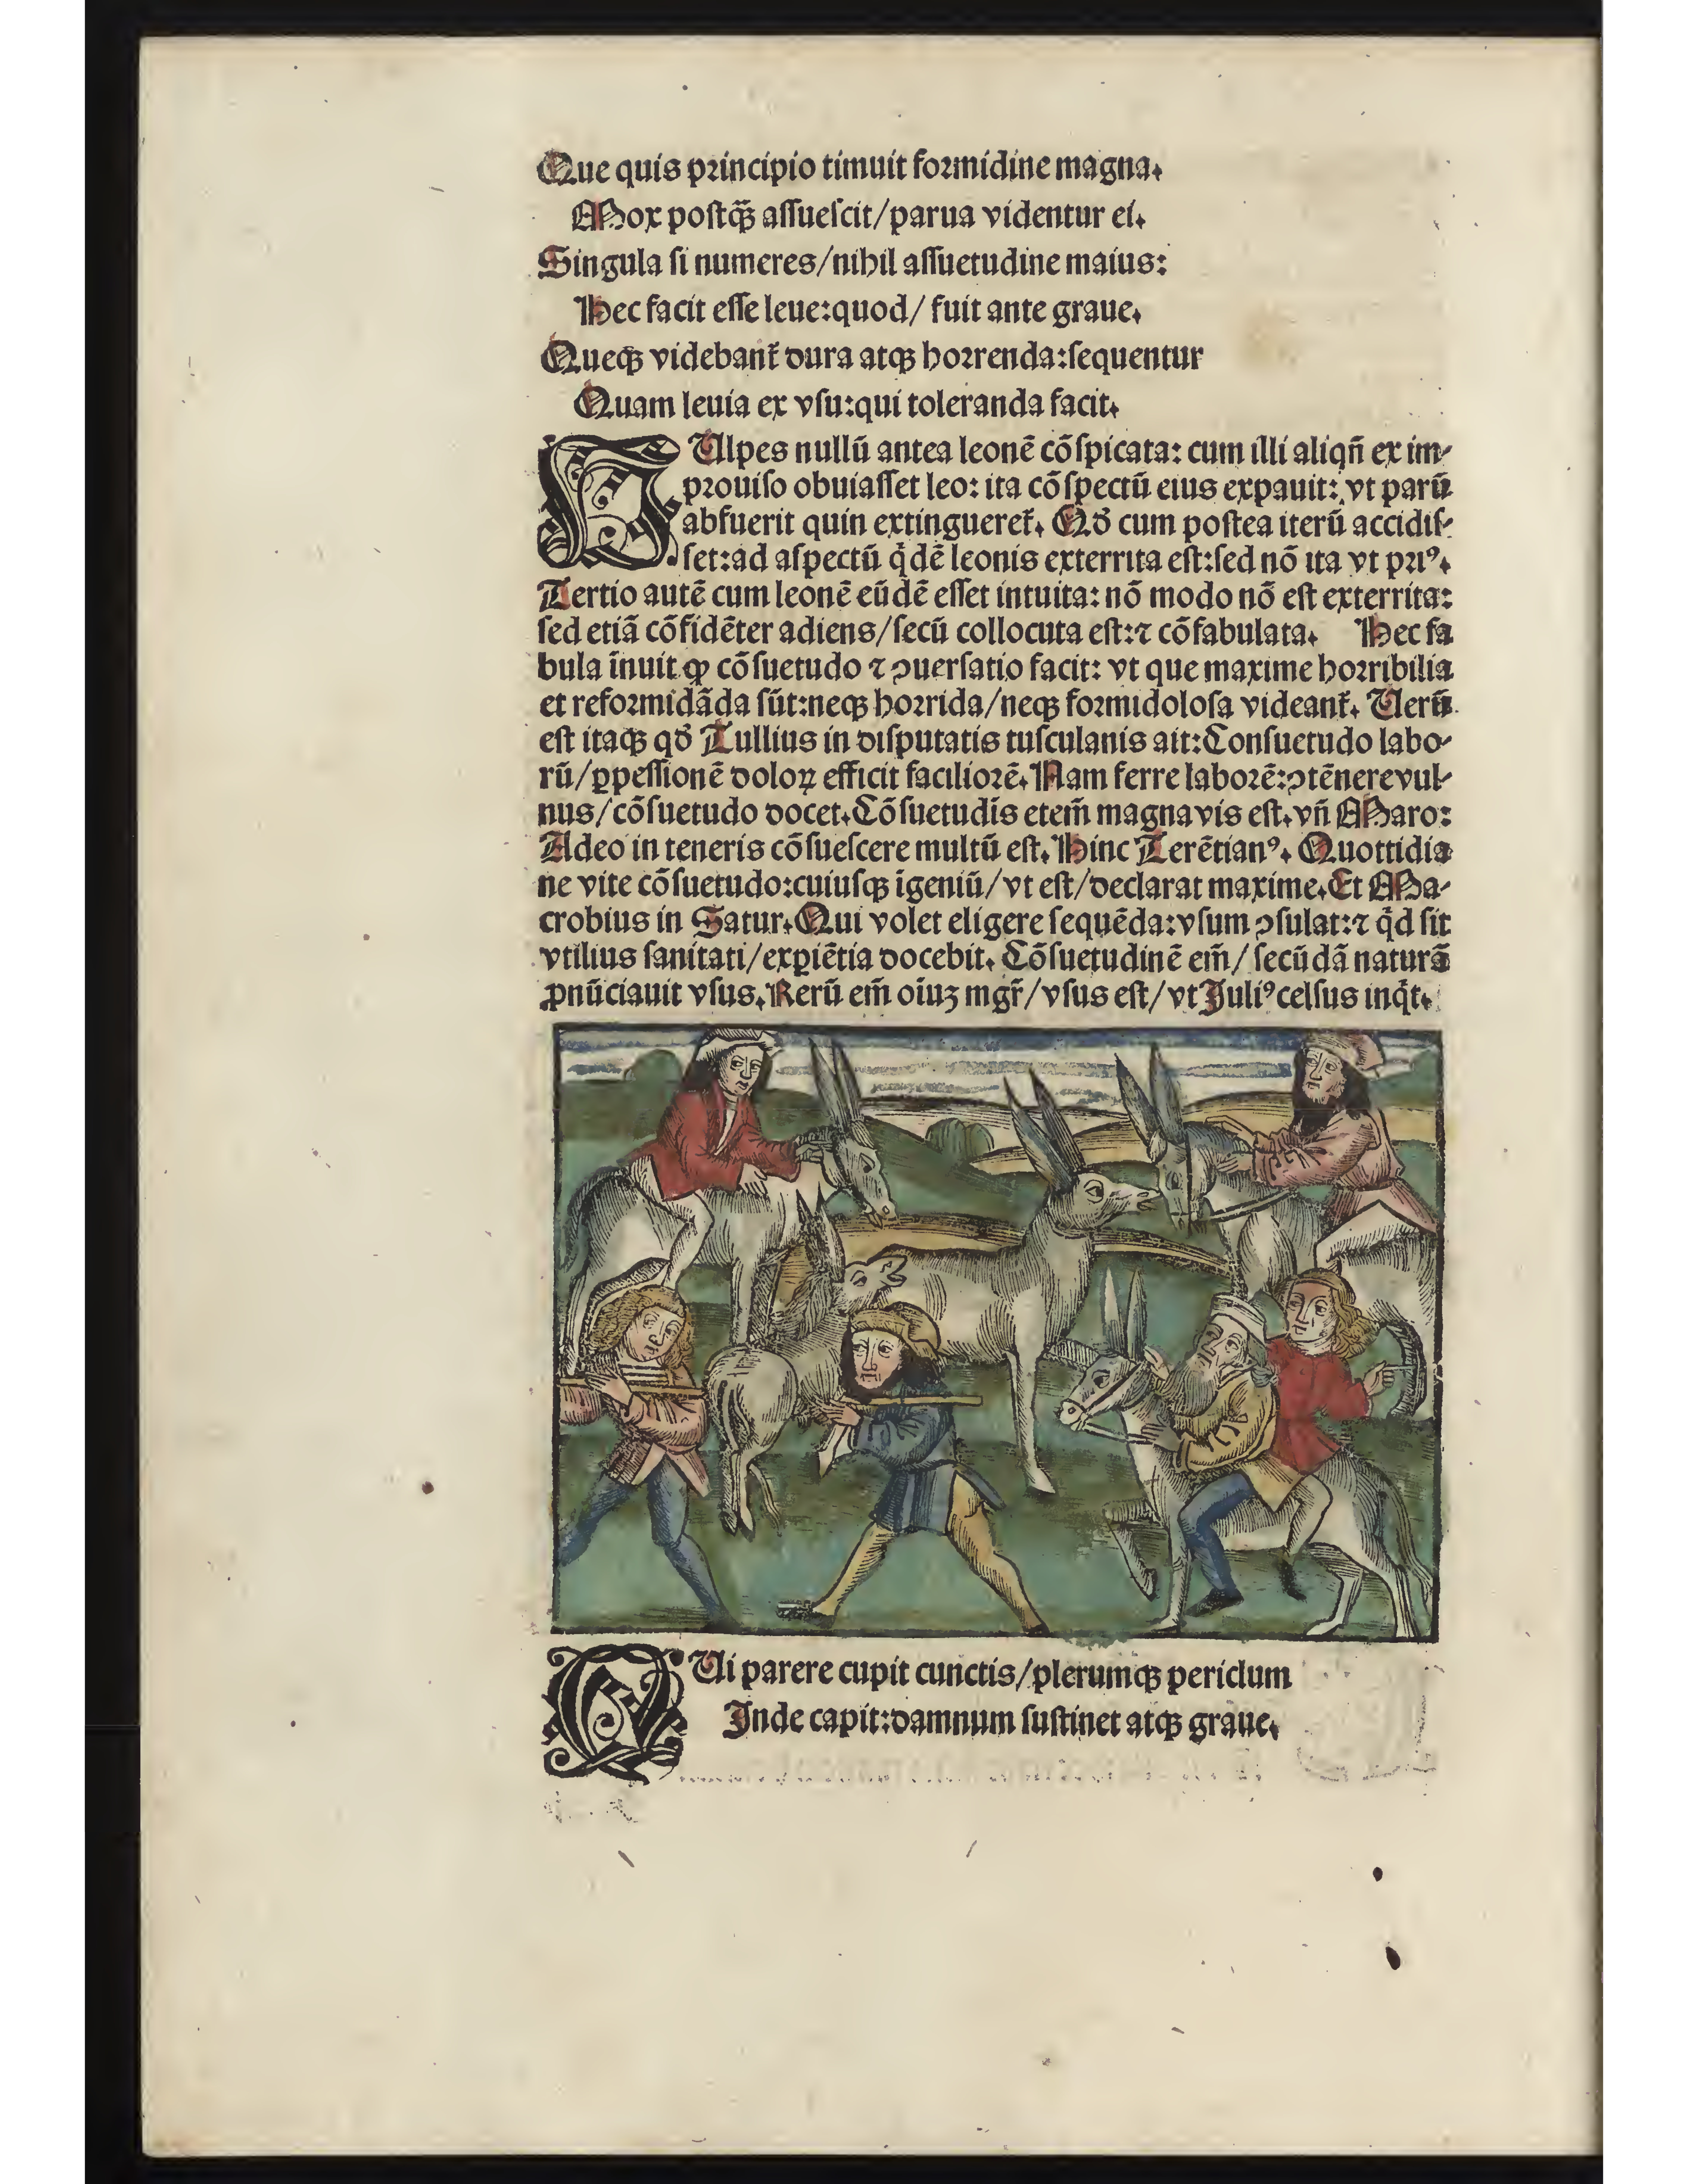 Que quis principio timuit formidine magna.
Mox postꝙ̃ aſſueſcit/parua videntur ei.
Singula ſi numeres/nihil aſſuetudine maius:
Hec facit eſſe leue:quod/ fuit ante graue.
Queqꝫ videbant᷑ dura atqꝫ horrenda:ſequentur
Quam leuia ex vſu:qui toleranda facit.
VUlpes nullū antea leonē cōſpicata: cum illi aliqn̄ ex im-
prouiſo obuiaſſet leo: ita cōſpectū eius expauit: vt parū
abfuerit quin extingueret᷑. Qď cum poſtea iterū accidiſ-
ſet:ad aſpectū q̇dē leonis exterrita eſt:ſed nō ita vt priꝰ.
Tertio autē cum leonē eūdē eſſet intuita: nō modo nō eſt exterrita:
ſed etiā cōfidēter adiens/ſecū collocuta eſt:⁊ cōfabulata. Hec fa
bula īnuit ꝙ cōſuetudo ⁊ ꝯuerſatio facit: vt que maxime horribilia
et reformidāda ſūt:neqꝫ horrida/neqꝫ formidoloſa videant᷑. Uerū
eſt itaqꝫ qď Tullius in diſputatis tuſculanis ait:Conſuetudo labo-
rū/ꝑpeſſionē doloꝝ efficit faciliorē. Nam ferre laborē:ꝯtēnere vul-
nus/cōſuetudo docet. Cōſuetudīs etem̄ magna vis eſt. vn̄ Maro:
Adeo in teneris cōſueſcere multū eſt. Hinc Terētianꝰ. Quottidia
ne vite cōſuetudo:cuiuſqꝫ īgeniū/vt eſt/declarat maxime. Et Ma-
crobius in Satur. Qui volet eligere ſequēda:vſum ꝯſulat:⁊ q̇d ſit
vtilius ſanitati/exꝑiētia docebit. Cōſuetudinē em̄/ ſecūdā naturā
ꝓnūciauit vſus. Rerū em̄ oīuꝫ mgr̄/vſus eſt/vt Juliꝰ celſus inq̇t.
QUi parere cupit cunctis/plerumqꝫ periclum
Inde capit:damnum ſuſtinet atqꝫ graue.